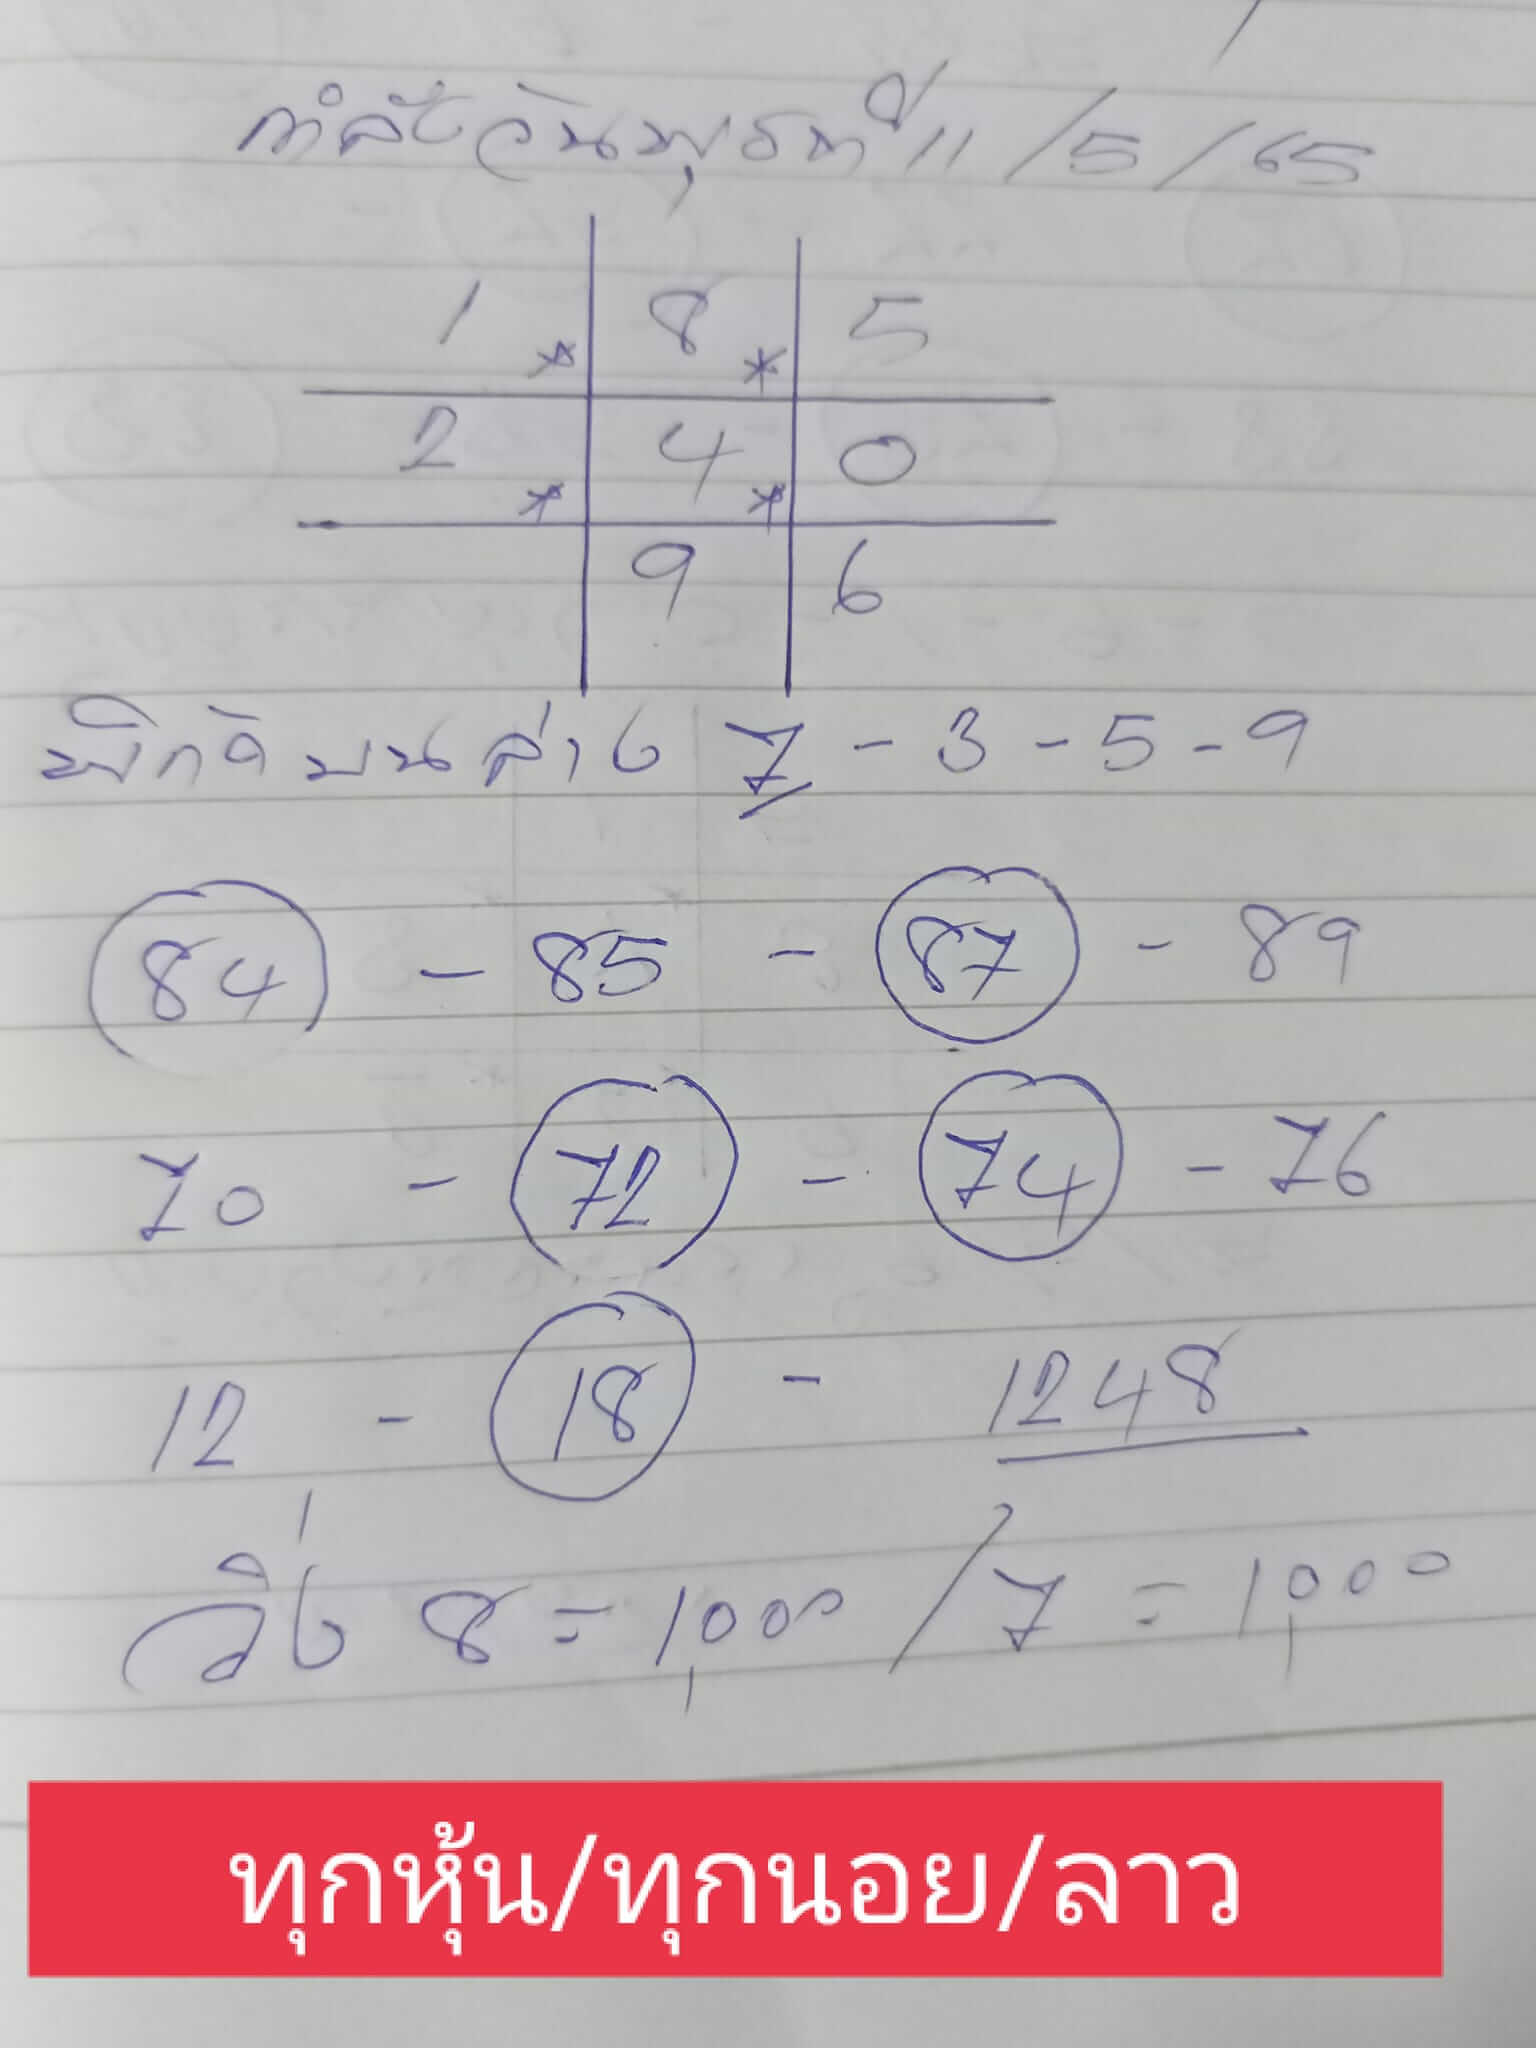 กำลังวันพุธที่ 11/5/65
1 8 5
* *
2 4 0
* *
9 6
พิกัด บนล่าง 7 - 3 - 5 - 9
84 - 85 - 87 - 89
70 - 72 - 74 - 76
12 - 18 - 1248
วิ่ง 8 = 1,000 / 7 = 1,000
ทุกหุ้น/ทุกนอย/ลาว